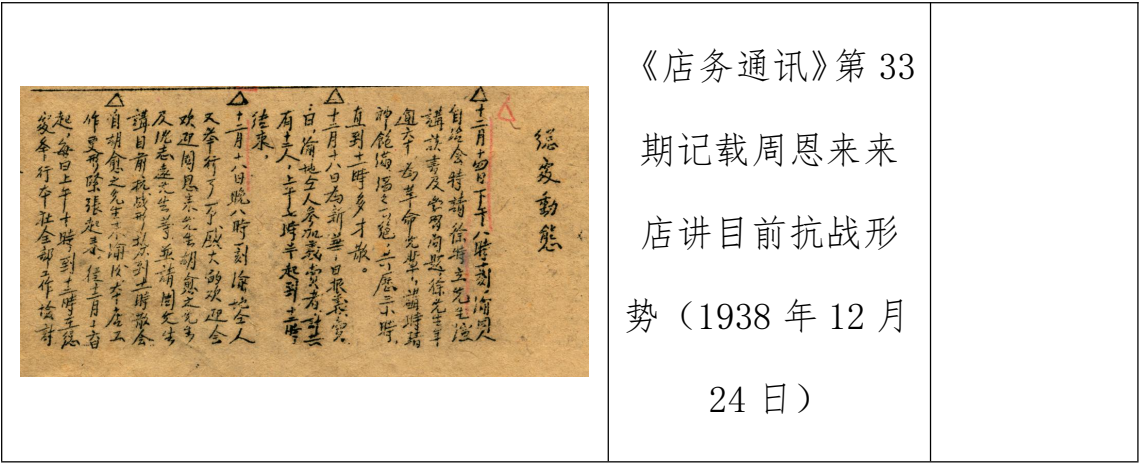 總處動態
十二月十四日下午八時一刻,渝同人
自洽會特請徐特立先生蒞
講談書及學習問題,徐先生年
逾六十,為革命先輩,講時精
神飽滿,偶之一笑,共歷三時,
直到十一時多才散。
十二月十八日為新華日報義賣
日,渝地仝人參加義賣者,計共
有十二人,上午七時半起到十二時
結束。
十二月十八日晚八時一刻渝地仝人
又舉行了一个盛大的歡迎會
歡迎周恩來先生胡愈之先生
及沈志遠先生等並請周先生
講目前抗战形势到十一時散會
自胡愈之先生來渝後,本店工
作更形緊張起來,從十二月十六日
起,每日上午十時到十二時在總
處舉行本社全部工作檢討
《店务通讯》第 33
期记载周恩来来
店讲目前抗战形
势（1938 年 12 月
24 日）